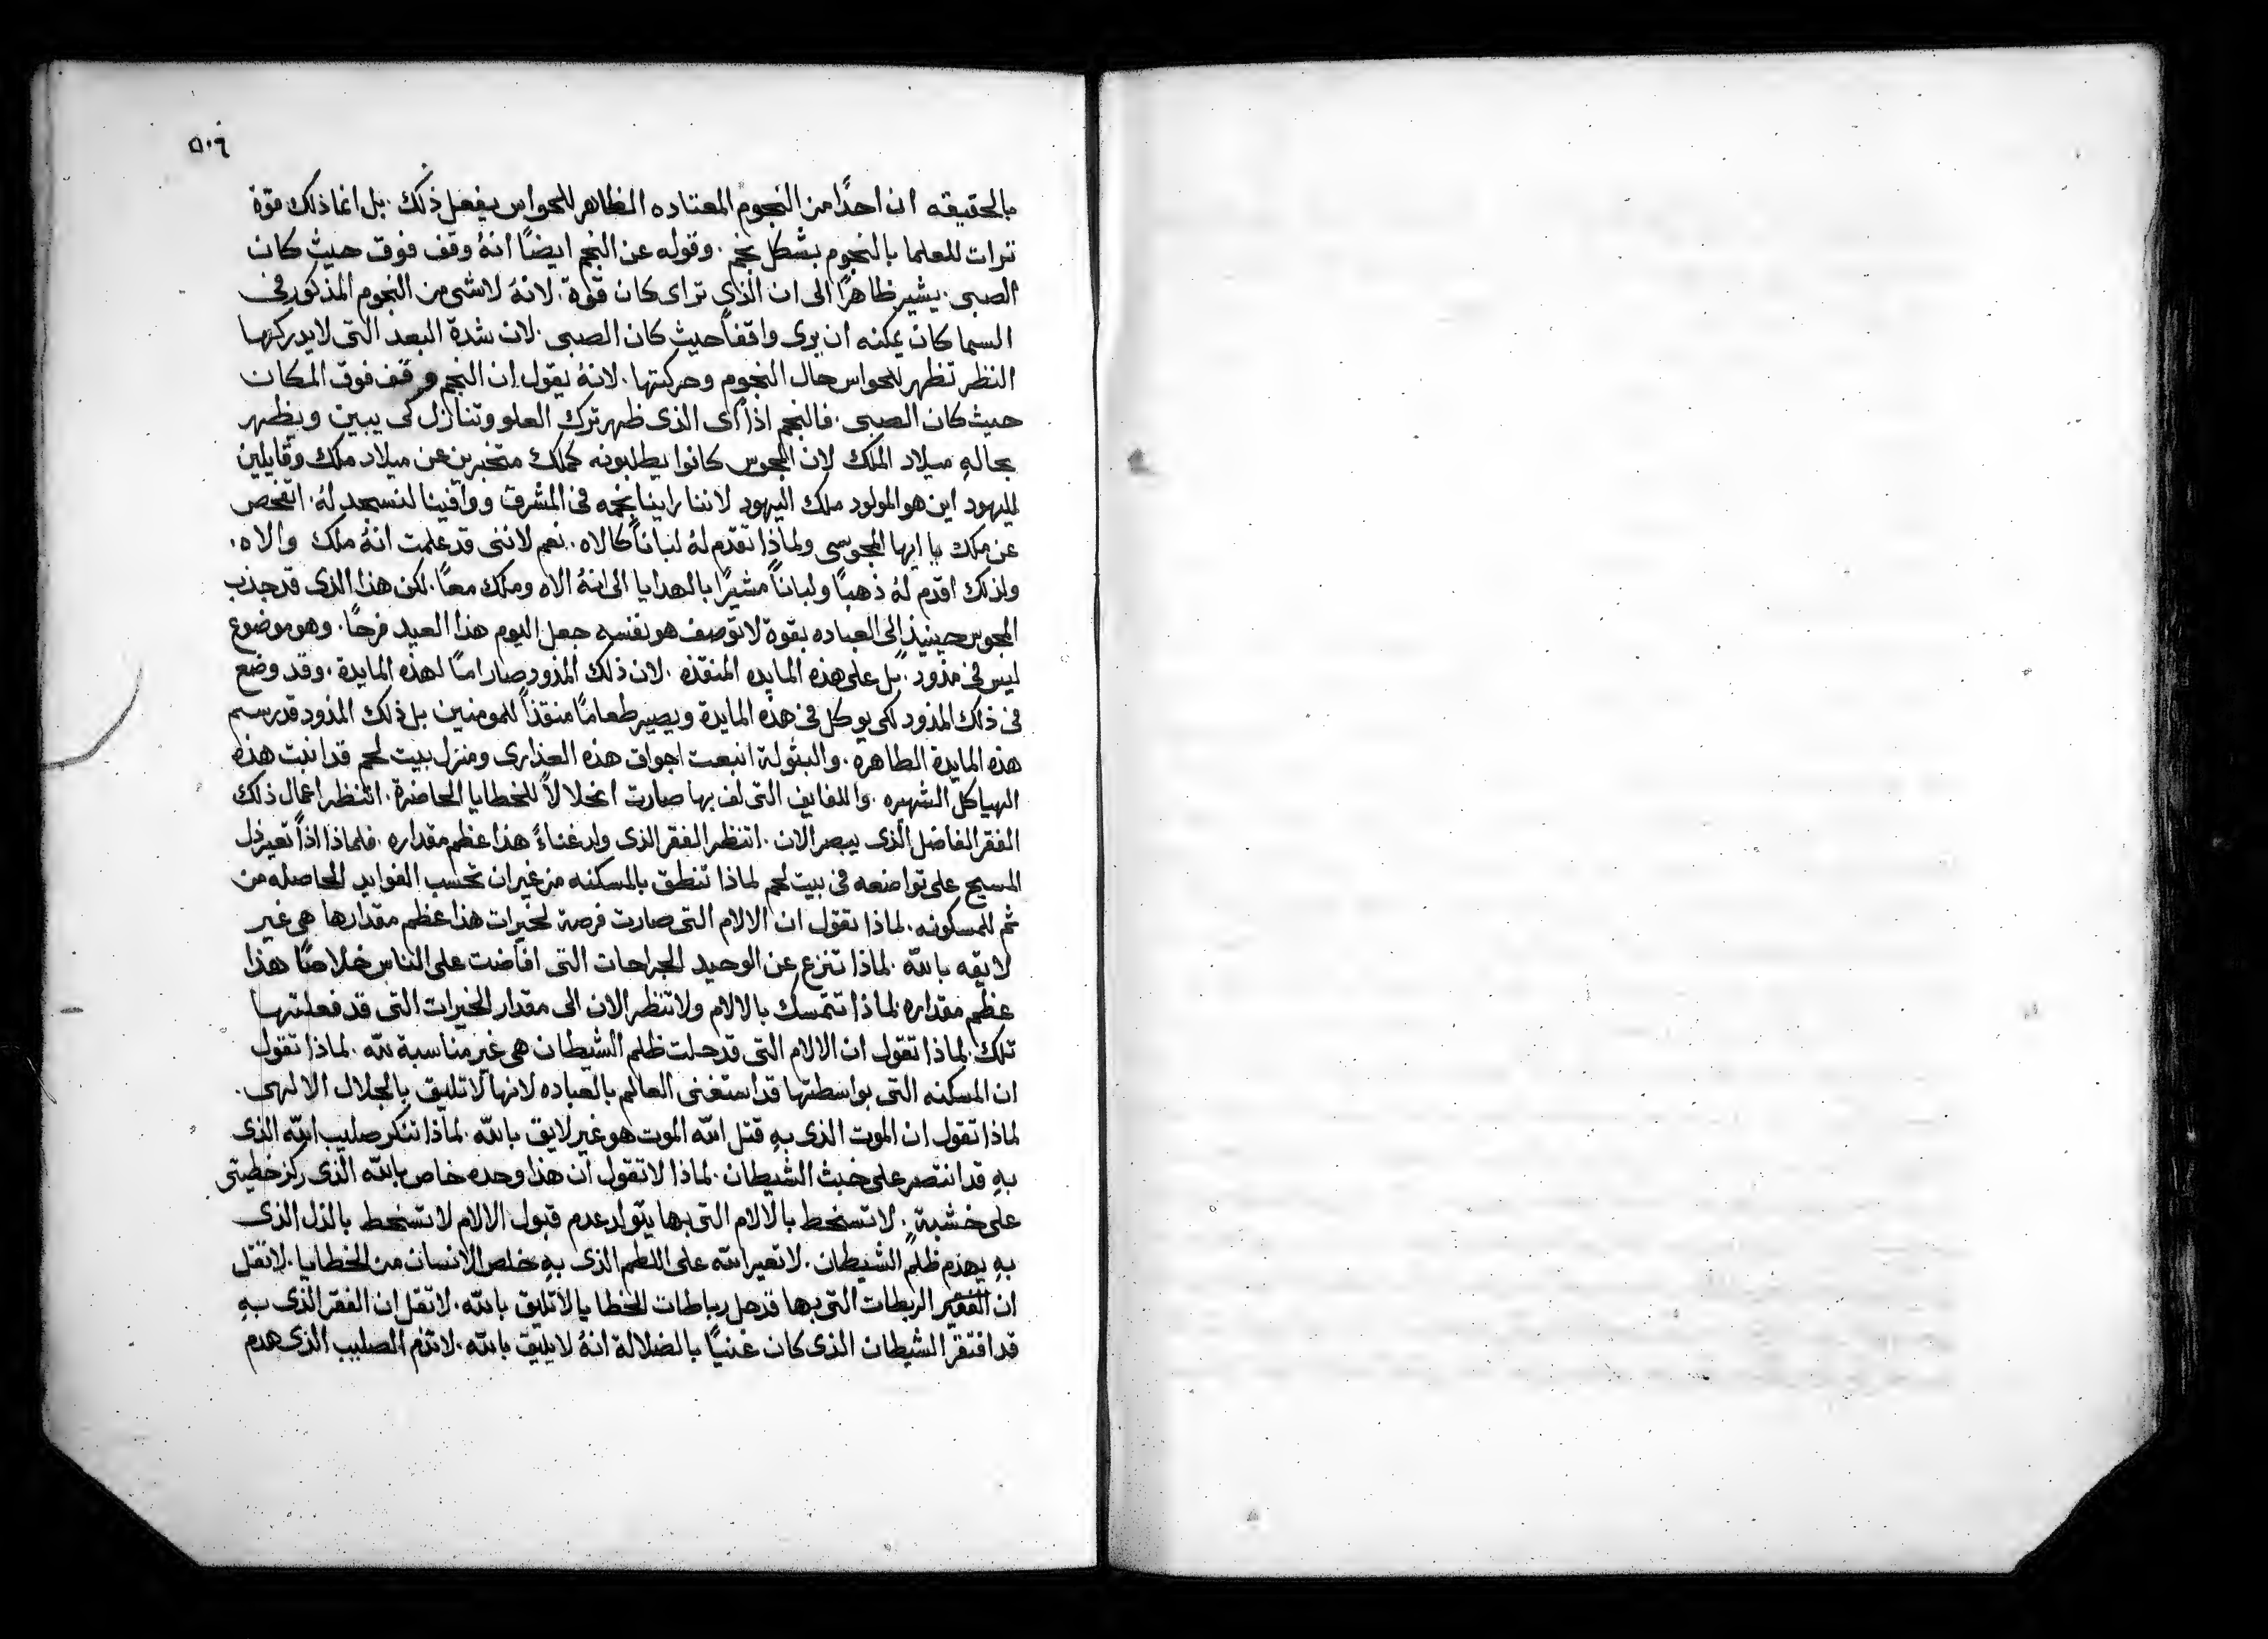 ٥٠٦
بالحقيقه ان احدًا من النجوم المعتاده الظاهر للحواس يفعل ذلك. بل انما ذلك قوة
ترات للعلما بالنجوم بشكل نجم. وقوله عن النجم ايضًا انهُ وقف فوق حيث كان
الصبى. يشير ظاهرًا الى ان الذى تراى كان قوة. لانهُ لاشى من النجوم المذكور فى
السما كان يمكنه ان يرى واقفًا حيث كان الصبى. لان شدة البعد التى لا يدركها
النظر تظهر للحواس حال النجوم وحركتها. لانهُ يقول ان النجم وقف فوق المكان
حيث كان الصبى. فالنجم اذًا اى الذى ظهر ترك العلو وتنازل كى يبين ويظهر
بحالهِ ميلاد الملك لان المجوس كانوا يطلبونه كملك متخبرين عن ميلاد ملك وقايلين
لليهود اين هو المولود ملك اليهود لاننا راينا نجمه فى المشرق ووافينا لنسجد لهُ. اتفحص
عن ملك يا ايها المجوسى ولماذا تقدم لهُ لبانًا كالاه. نعم لاننى قد علمت انهُ ملك والاه.
ولذلك اقدم لهُ ذهبًا ولبانًا مشيرًا بالهدايا الى انهُ الاه وملك معًا. لكن هذا الذى قد جذب
المجوس حينيذٍ الى العباده بقوة لا توصف هو نفسه جعل اليوم هذا العيد فرحًا. وهو موضوع
ليس فى مذود. بل على هذه المايده المنقذه. لان ذلك المذود صار امًا لهذه المايدة. وقد وضع
فى ذلك المذود لكى يوكل فى هذه المايدة ويصير طعامًا منقذًا للمومنين بل ذلك المذود قد رسم
هذه المايدة الطاهره. والبتولة انبعت اجواق هذه العذارى ومنزل بيت لحم قد انبت هذه
الهياكل الشهيره. واللفايف التى لف بها صارت انحلالاً للخطايا الحاضرة. اتنظر اعمال ذلك
الفقر الفاضل الذى يبصر الان. اتنظر الفقر الذى ولد غناءً هذا عظم مقداره. فلماذا اذًا تعير ذل
المسيح على تواضعه فى بيت لحم لماذا تنطق بالمسكنه من غير ان تحسب الفوايد الحاصله من
ثم للمسكونه. لماذا تقول ان الالام التى صارت فرصة لخيرات هذا عظم مقدارها هى غير
لايقه بالله. لماذا تنزع عن الوحيد الجراحات التى افاضت على الناس خلاصًا هذا
عظم مقداره لماذا تتمسك بالالام ولا تنظر الان الى مقدار الخيرات التى قد فعلتها
تلك. لماذا تقول ان الالام التى قد حلت ظلم الشيطان هى غير مناسبة لله. لماذا تقول
ان المسكنه التى بواسطتها قد استغنى العالم بالعباده لانها لا تليق بالجلال الالهى.
لماذا تقول ان الموت الذى بهِ قتل الله الموت هو غير لايق بالله. لماذا تنكر صليب الله الذى
بهِ قد انتصر على خبث الشيطان. لماذا لا تقول ان هذا وحده خاص بالله الذى ركز خطيتى
على خشبة. لا تسخط بالالام التى بها يتولد عدم قبول الالام لا تسخط بالذل الذى
بهِ يهزم ظلم الشيطان. لا تعير الله على اللطم الذى بهِ خلص الانسان من الخطايا. لا تقل
ان الربطات التى بها قد حل رباطات الخطايا لا تليق بالله. لا تقل ان الفقر الذى بهِ
قد افتقر الشيطان الذى كان غنيًا بالضلالة انهُ لا يليق بالله. لا تذم الصليب الذى هدم